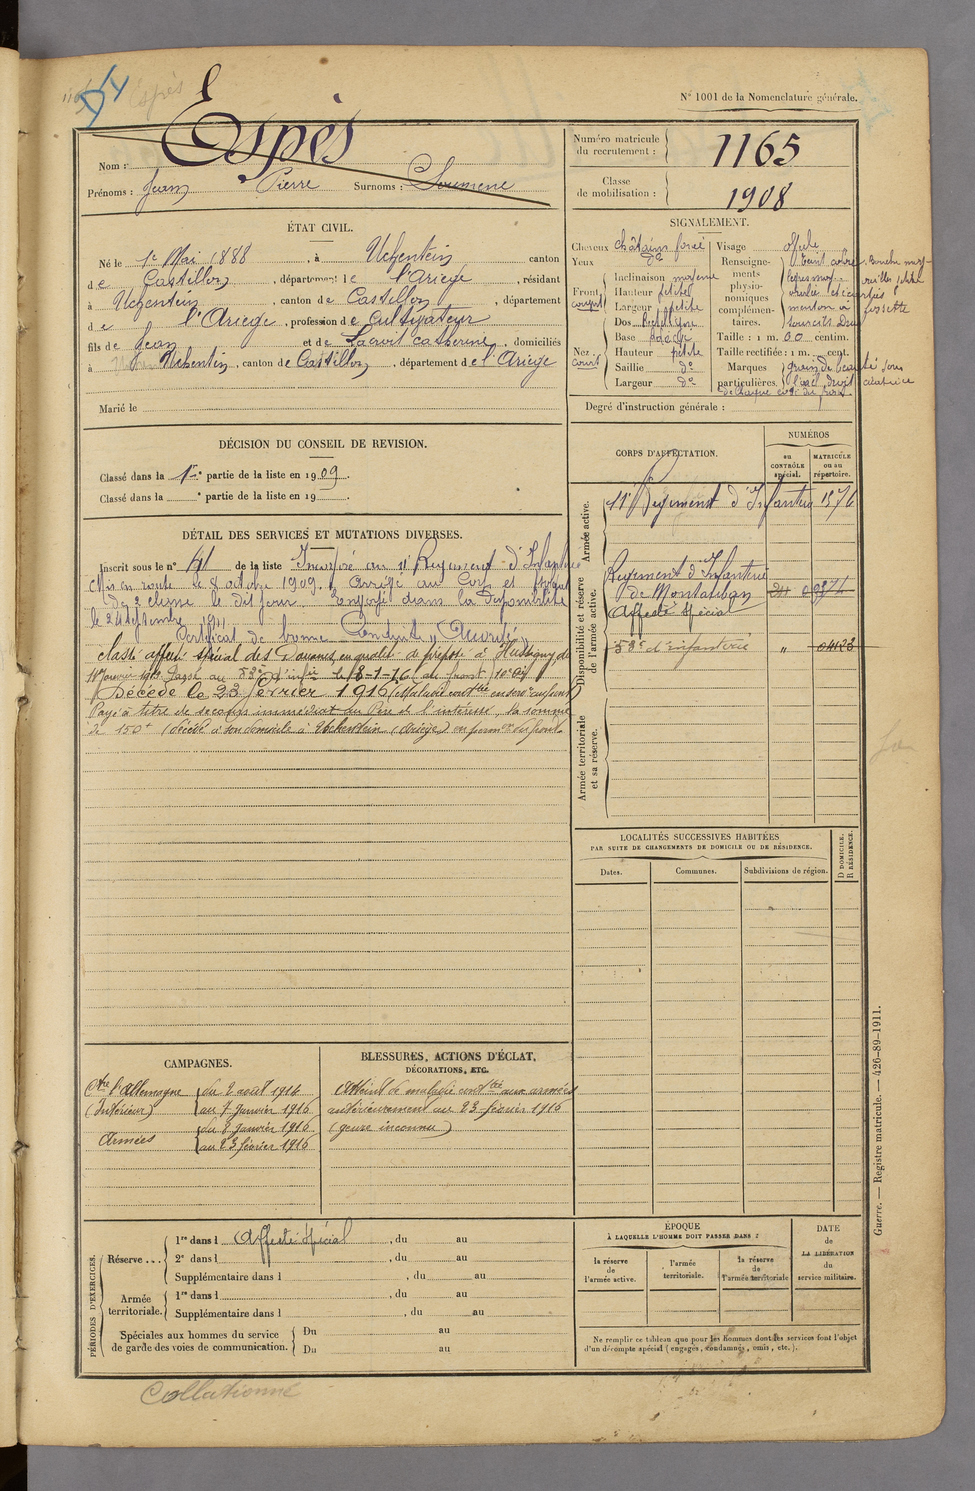 N° 1001 de la Nomenclature générale.
Nom : Espès
Prénoms : Jean Pierre Surnoms : Soumene
Numéro matricule du recrutement : 1165
Classe de mobilisation : 1908
ÉTAT CIVIL.
Né le 1er Mai 1888, à Uchentein canton
de Castillon, département de l'Ariège, résidant
à Uchentein, canton de Castillon, département
de l'Ariège, profession de cultivateur
fils de Jean et de Catherine, domiciliés
à Uchentein, canton de Castillon, département de l'Ariège
Marié le
SIGNALEMENT.
Cheveux châtain foncé
Yeux do
Front Inclinaison moyenne
Hauteur petite
Largeur petite
Nez Dos Rectiligne
Base
Hauteur petite
Saillie do
Largeur do
Visage
Renseignements physionomiques complémentaires.
menton à fossette
Taille : 1 m. 60 centim.
Taille rectifiée : 1 m. cent.
Marques particulières. grain de beauté sous l'œil droit cicatrice
Degré d'instruction générale :
DÉCISION DU CONSEIL DE REVISION.
Classé dans la 1re partie de la liste en 1909.
Classé dans la e partie de la liste en 19
DÉTAIL DES SERVICES ET MUTATIONS DIVERSES.
Inscrit sous le n° 41 de la liste Incorporé au 11e Régiment d'Infanterie
Mis en route le 8 octobre 1909. Arrivé au Corps et
de 2e classe le dit jour. Envoyé dans la disponibilité
le 24 septembre 1911
Certificat de bonne Conduite "Accordé"
classé affecté spécial des Douanes en qualité de préposé à Hussigny
Janvier 1914 Passé au 53e d'infie le 8-1-16
Décédé le 23 Février 1916
Payé à titre de secours immédiat au Père de l'intéressé, la somme
de 150 f (décédé à son domicile à Uchentein (Ariège) en permon du front
CORPS D'AFFECTATION.
NUMÉROS
au CONTRÔLE spécial.
MATRICULE ou au répertoire.
Armée active.
11e Régiment d'Infanterie 1576
Disponibilité et réserve de l'armée active.
Régiment d'Infanterie
de Montauban
Affecté Spécial
53e d'infanterie " 04123
Armée territoriale et sa réserve.
LOCALITÉS SUCCESSIVES HABITÉES
PAR SUITE DE CHANGEMENTS DE DOMICILE OU DE RÉSIDENCE.
Dates. Communes. Subdivisions de région. D DOMICILE. R RÉSIDENCE.
CAMPAGNES.
Ctre l'Allemagne du 2 août 1914
(Intérieur) au 7 Janvier 1916
Armées du 8 Janvier 1916
au 23 février 1916
BLESSURES, ACTIONS D'ÉCLAT,
DÉCORATIONS, ETC.
Atteint de maladie contée aux armées
antérieurement au 23 février 1916
(genre inconnu)
PÉRIODES D'EXERCICES.
Réserve... 1re dans l Affecté Spécial, du au
2e dans l , du au
Supplémentaire dans l , du au
Armée territoriale. 1re dans l , du au
Supplémentaire dans l , du au
Spéciales aux hommes du service de garde des voies de communication. Du au
Du au
ÉPOQUE
À LAQUELLE L'HOMME DOIT PASSER DANS :
la réserve de l'armée active.
l'armée territoriale.
la réserve de l'armée territoriale
DATE de LA LIBÉRATION du service militaire.
Ne remplir ce tableau que pour les hommes dont les services font l'objet
d'un décompte spécial (engagés, condamnés, omis, etc.).
Guerre. — Registre matricule. — 426-89-1911.
Collationné